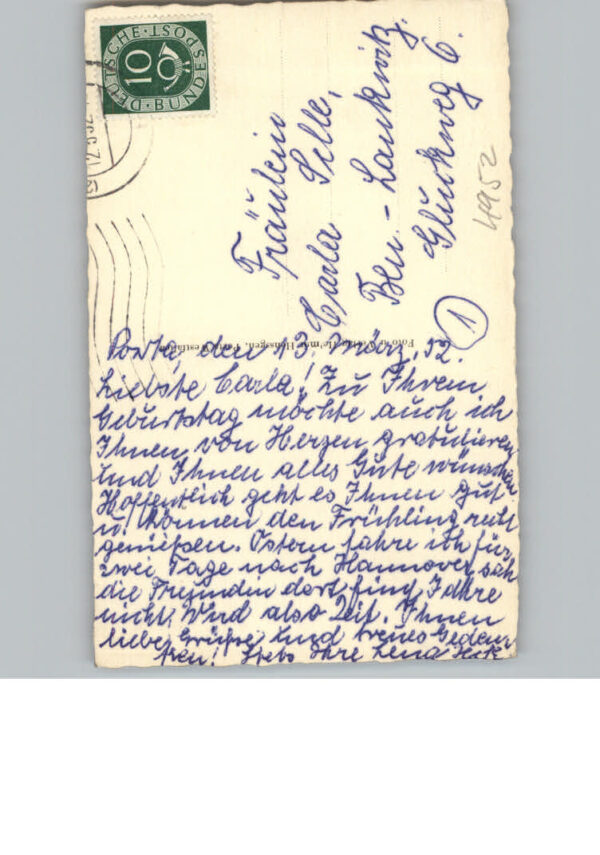 DEUTSCHE · BUNDESPOST
10
12.3.52
Fräulein
Carla Selle,
Bln. - Lankwitz.
Gluckweg 6.
1952
1
Porta, den 13. März, 52.
Liebste Carla! Zu Ihrem
Geburtstag möchte auch ich
Ihnen von Herzen gratulieren
und Ihnen alles Gute wünschen
Hoffentlich geht es Ihnen gut
u. können den Frühling recht
genießen. Ostern fahre ich für
zwei Tage nach Hannover, sah
die Freundin dort fünf Jahre
nicht. Wird also Zeit. Ihnen
liebe Grüße und treues Geden-
ken! Stets Ihre Lena